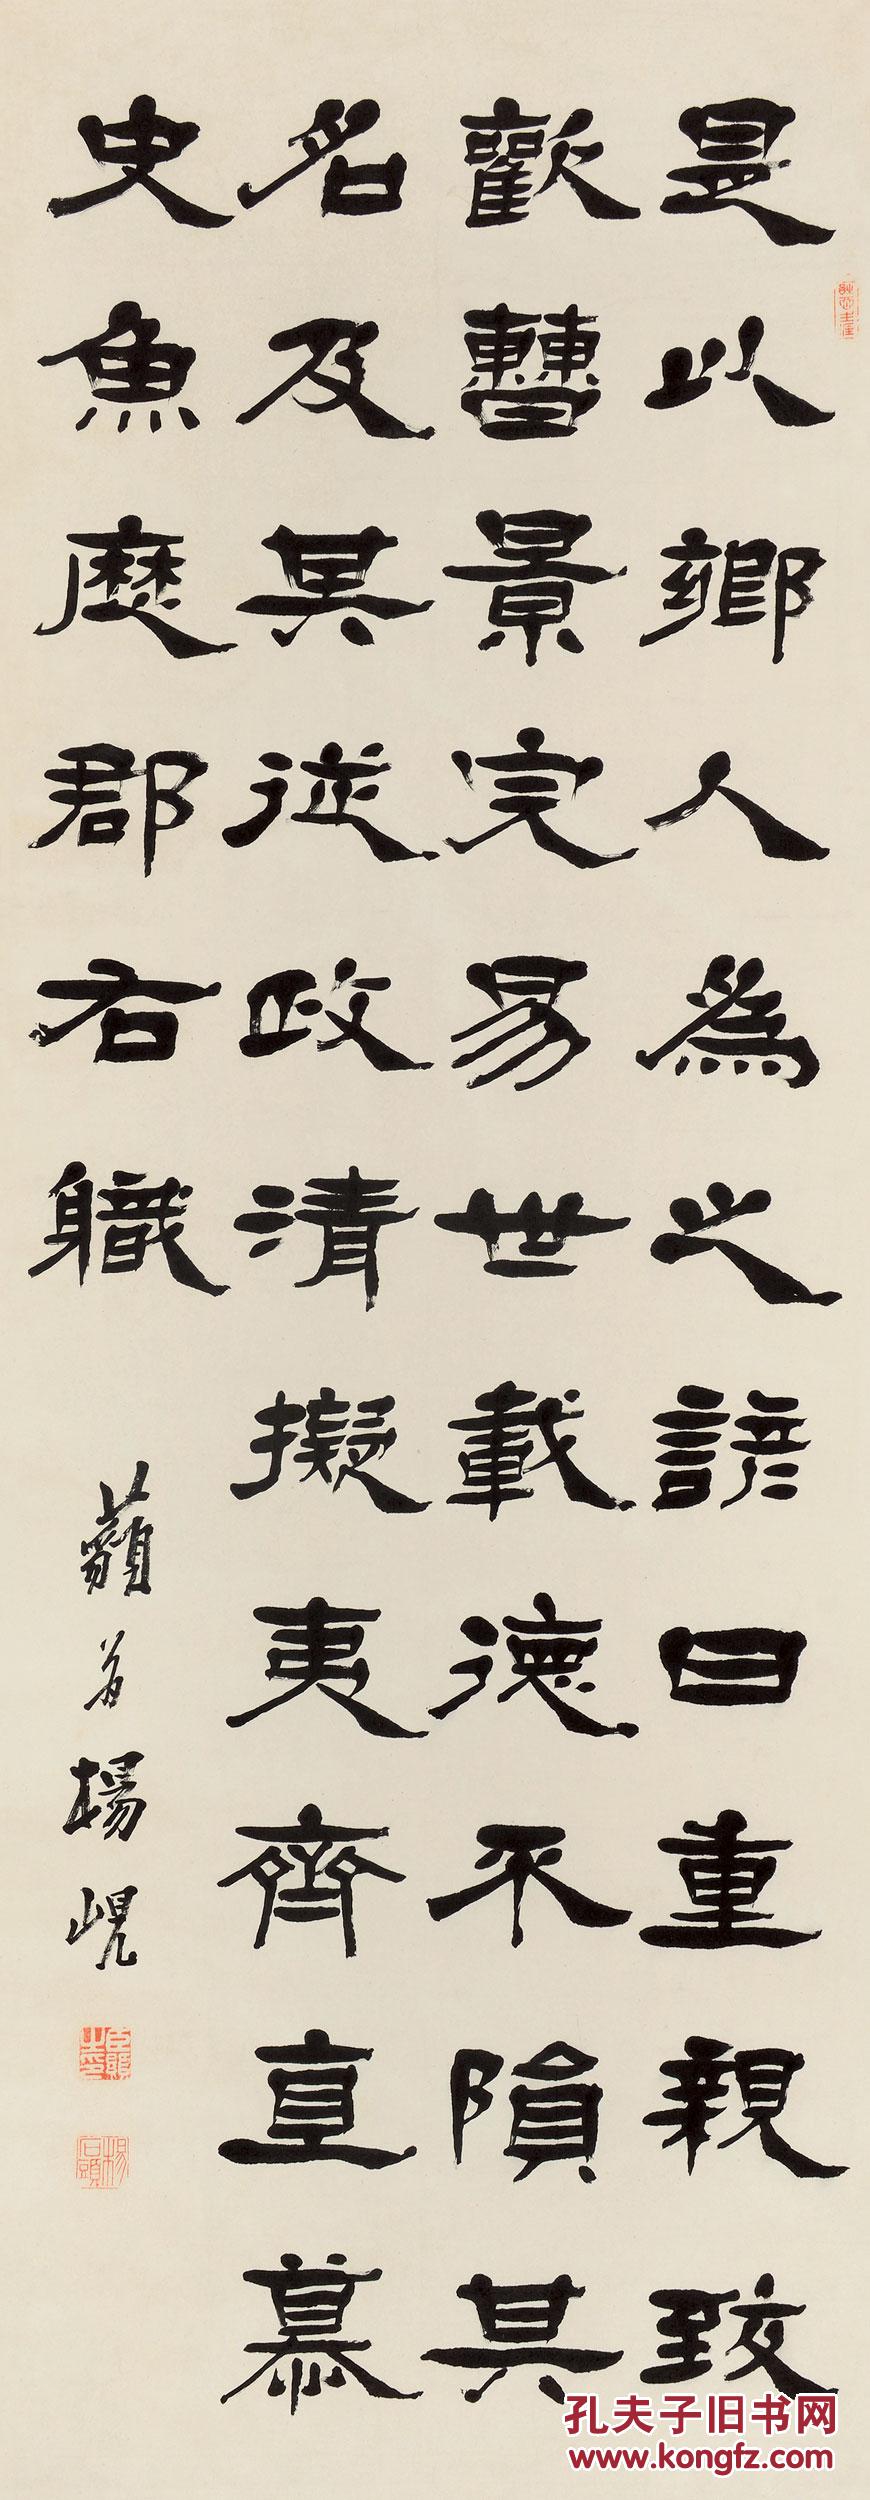 是以鄉人為之諺曰重親致
歡曹景完易世載德不隕其
名及其從政清擬夷齊直慕
史魚歷郡右職
藐翁楊峴
楊石頭
孔夫子旧书网
www.kongfz.com